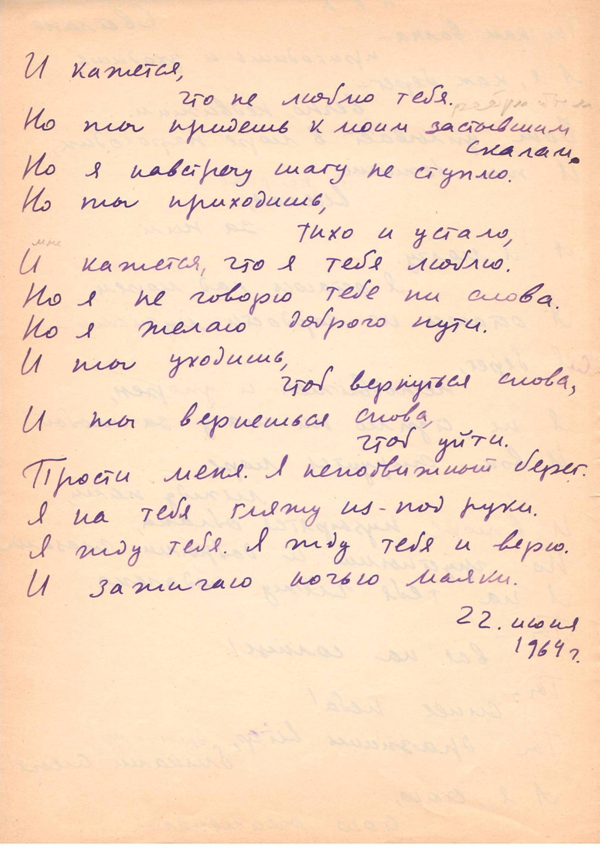 И кажется,
что не люблю тебя.
Но ты придешь к моим застывшим
скалам.
Но я навстречу шагу не ступлю.
Но ты приходишь,
тихо и устало,
мне
И кажется, что я тебя люблю.
Но я не говорю тебе ни слова.
Но я желаю доброго пути.
И ты уходишь,
чтоб вернуться снова,
И ты вернешься снова,
чтоб уйти.
Прости меня. Я неподвижный берег.
Я на тебя гляжу из-под руки.
Я жду тебя. Я жду тебя и верю.
И зажигаю ночью маяки.
22. июня
1964 г.